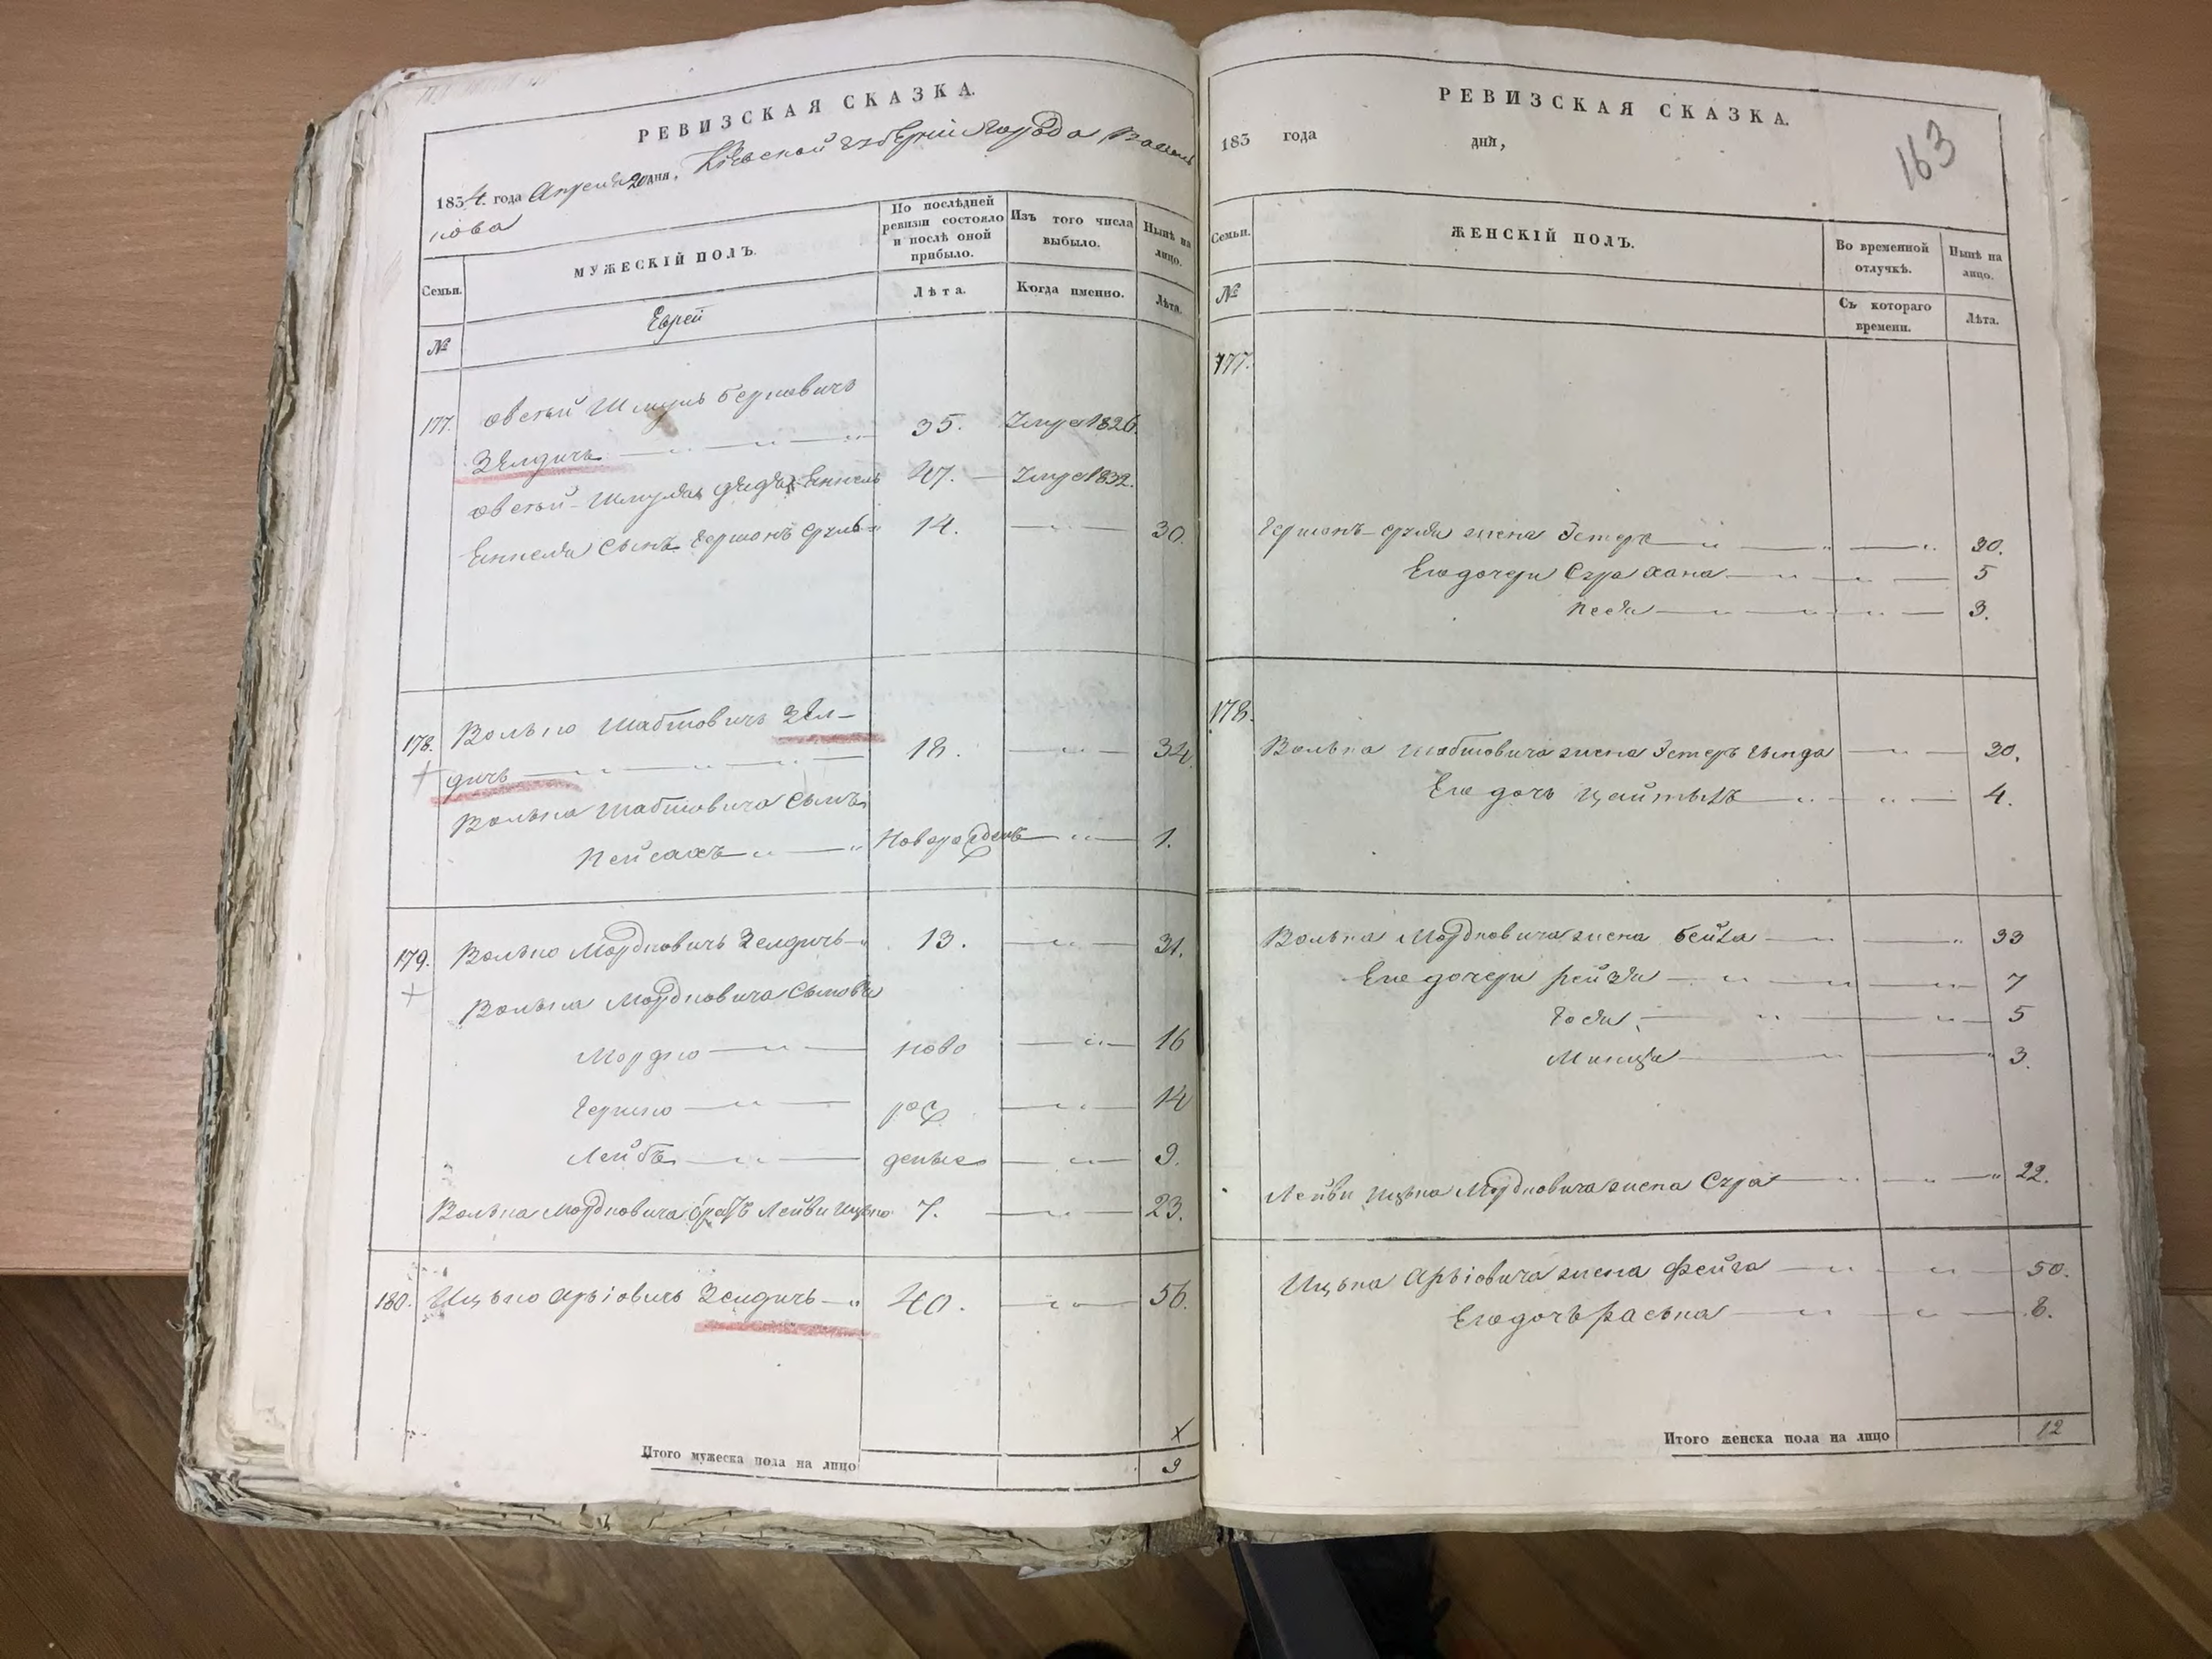 РЕВИЗСКАЯ СКАЗКА.
1834. года Апреля 20 дня, Кіевской губерніи города Василь
кова
Семьи.
МУЖЕСКІЙ ПОЛЪ.
По послѣдней ревизіи состояло и послѣ оной прибыло.
Изъ того числа выбыло.
Нынѣ на лицо.
№
Еврей
Лѣта.
Когда именно.
Лѣта.
177. Овсѣй Шмуль Берковичъ
Зелдичъ 35. Умре 1826.
Овсѣй Шмуля дядя 47. Умре 1832.
сынъ Гершонъ Сруль 14. 30.
178. Волько Шабшовичъ Зел-
дичъ 18. 34.
Волька Шабшовича сынъ
Пейсахъ Новорожденъ 1.
179. Волько Мордковичъ Зелдичъ 13. 31.
Волька Мордковича сыновья
Мордко ново 16
Гершко рож 14
Лейбъ деные 9.
Волька Мордковича братъ Лейви Ицько 7. 23.
180. Ицько Арьіовичъ Зелдичъ 40. 56.
х
Итого мужеска пола на лицо 9
РЕВИЗСКАЯ СКАЗКА.
183 года дня,
163
Семьи.
ЖЕНСКІЙ ПОЛЪ.
Во временной отлучкѣ.
Нынѣ на лицо.
№
Съ котораго времени.
Лѣта.
177.
Гершонъ Сруля жена Эстеръ 30.
Его дочери Сура Хана 5
Песя 3.
178.
Волька Шабшовича жена Эстеръ Гинда 30.
Его дочь 4.
Волька Мордковича жена Бейла 33
Его дочери Рейзя 7
Тося 5
Минця 3.
Лейви Ицька Мордковича жена Сура 22.
Ицька Арьіовича жена Фейга 50.
Его дочь Раська 8.
Итого женска пола на лицо 12